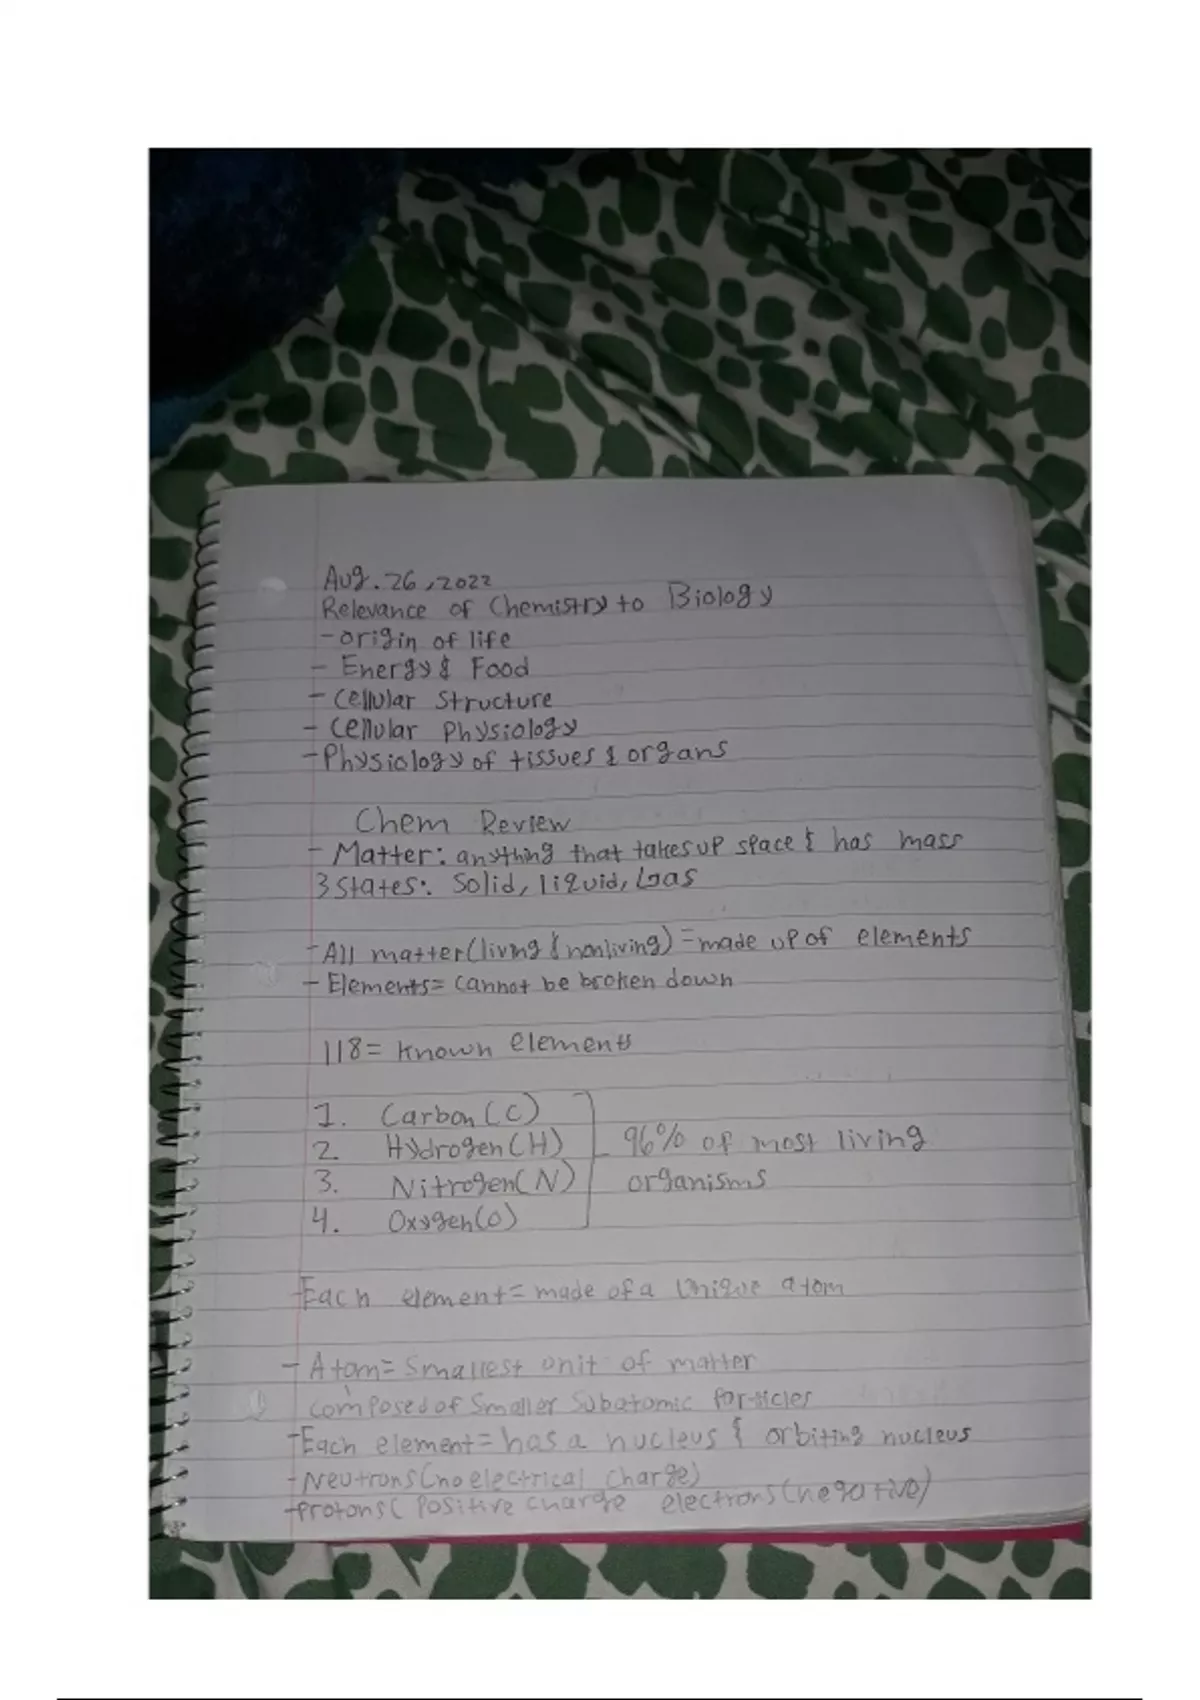 Aug. 26, 2022
Relevance of Chemistry to Biology
- origin of life
- Energy & Food
- Cellular Structure
- Cellular Physiology
- Physiology of tissues & organs
Chem Review
- Matter: anything that takes up space & has mass
3 States: Solid, liquid, Gas
- All matter (living & nonliving) = made up of elements
- Elements = cannot be broken down
118 = known elements
1. Carbon (C)
2. Hydrogen (H) - 96% of most living
3. Nitrogen (N) organisms
4. Oxygen (O)
- Each element = made of a unique atom
- Atom = Smallest unit of matter
composed of smaller subatomic particles
- Each element = has a nucleus & orbiting nucleus
- Neutrons (no electrical charge)
- Protons ( Positive charge electrons (negative)